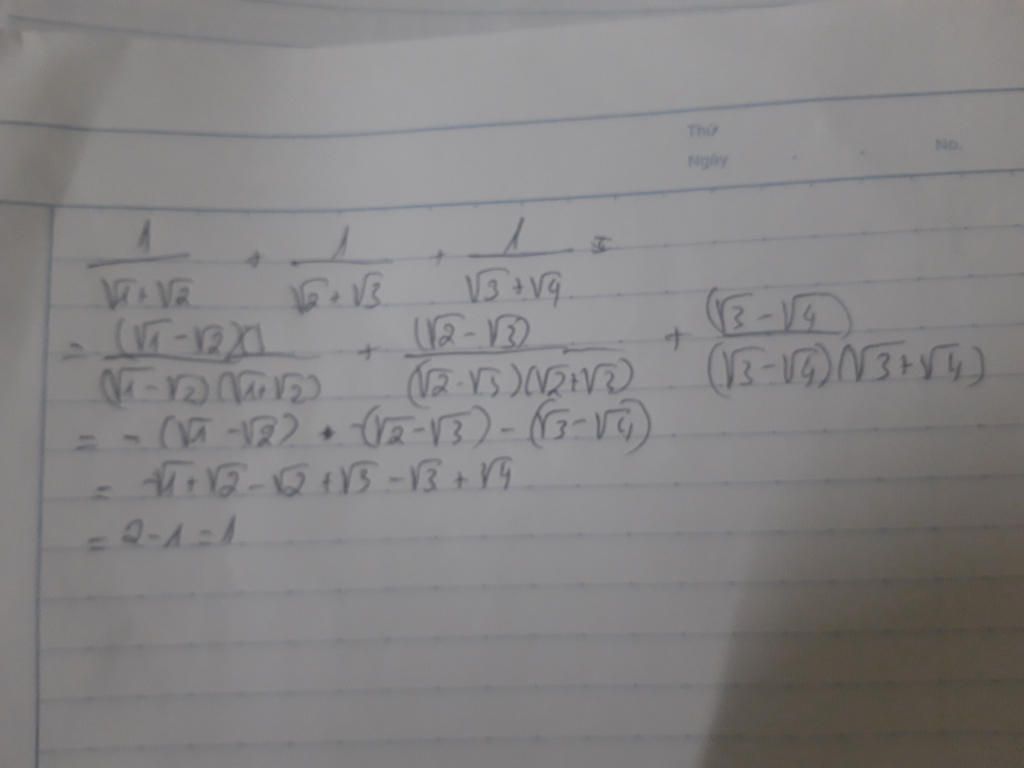 Thứ
Ngày
No.
1/(√1+√2) + 1/(√2+√3) + 1/(√3+√4) =
= (√1-√2)×1/((√1-√2)(√1+√2)) + (√2-√3)/((√2-√3)(√2+√3)) + (√3-√4)/((√3-√4)(√3+√4))
= -(√1-√2) -(√2-√3) - (√3-√4)
= -√1+√2-√2+√3-√3+√4
= 2-1=1